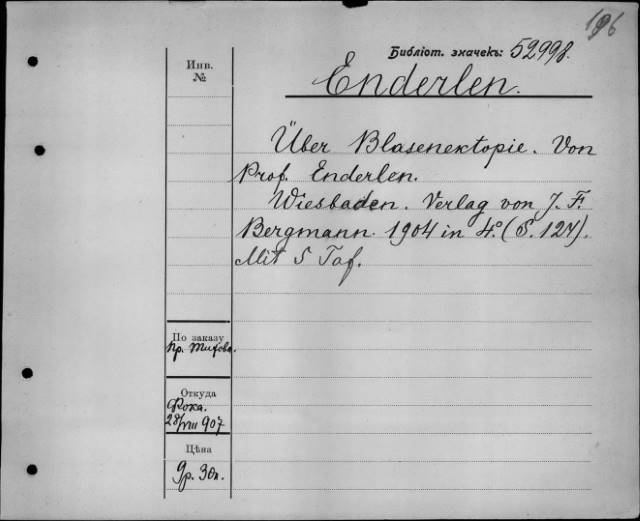 196
Библіот. значекъ: 52998.
Enderlen.
Инв.
№
Über Blasenektopie. Von
Prof. Enderlen.
Wiesbaden. Verlag von J. F.
Bergmann. 1904 in 4º. (S. 124).
Mit 5 Taf.
По заказу
Пр. Титова.
Откуда
Фока.
28/VIII 907
Цѣна
9р. 30к.